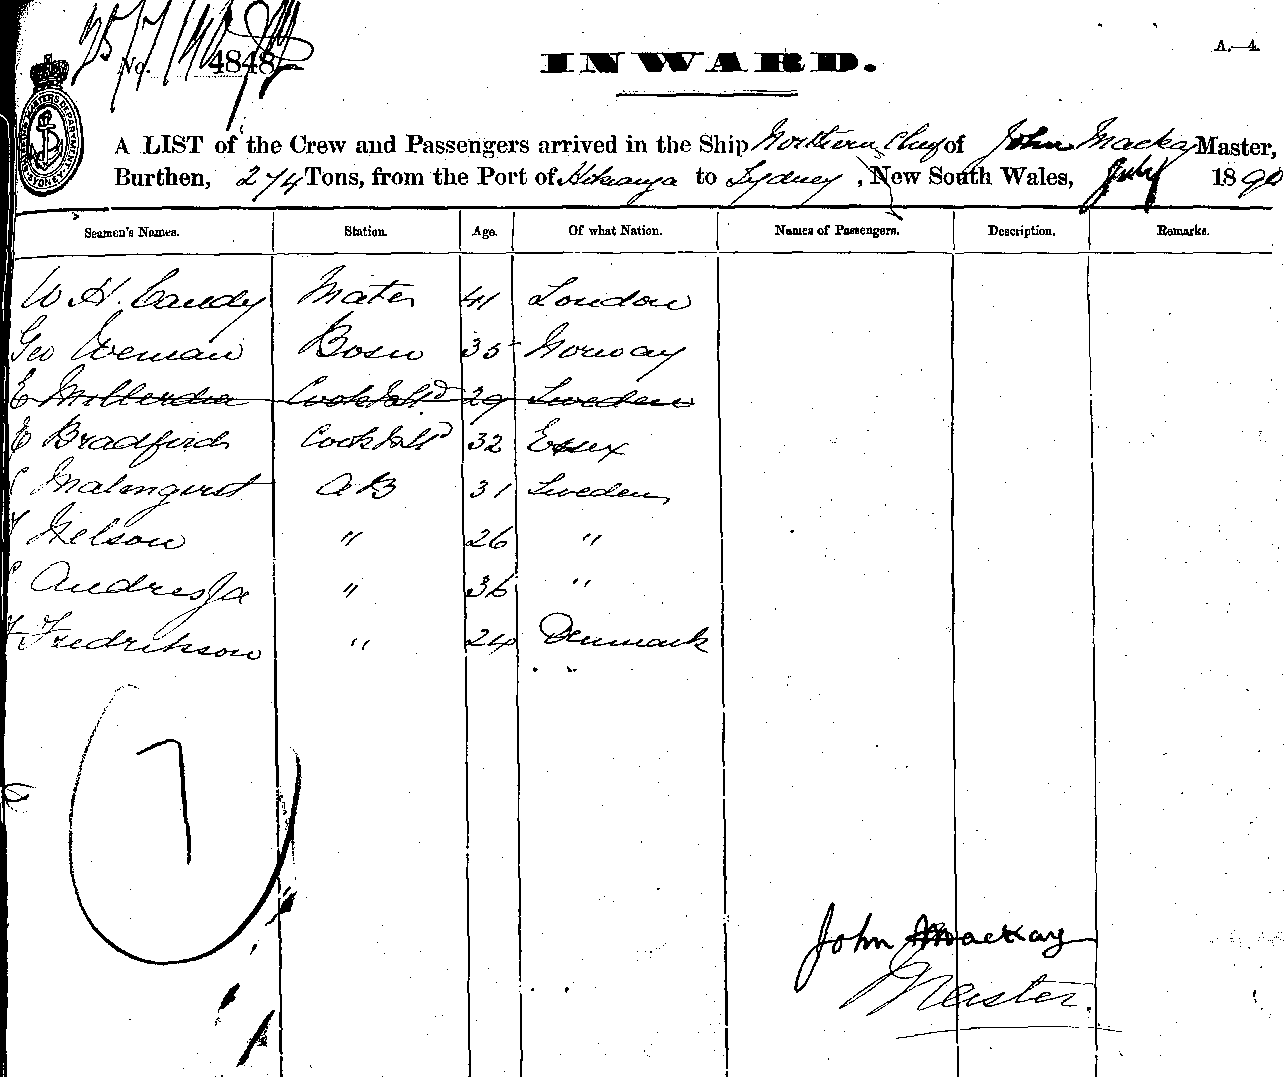 25/7/90
No. 4848
INWARD.
A.—4.
A LIST of the Crew and Passengers arrived in the Ship Northern Chief of John Mackay Master,
Burthen, 274 Tons, from the Port of Hokianga to Sydney, New South Wales, July 1890
Seamen's Names. Station. Age. Of what Nation. Names of Passengers. Description. Remarks.
W H. Candy Mate 41 London
Geo Weman Bosn 35 Norway
E Cook & Std 29 Sweden
E Bradford Cook & Std 32 Essex
Malmqvist AB 31 Sweden
Nelson " 26 "
" 36 "
Fredrikson " 24 Denmark
7
John Mackay
Master.